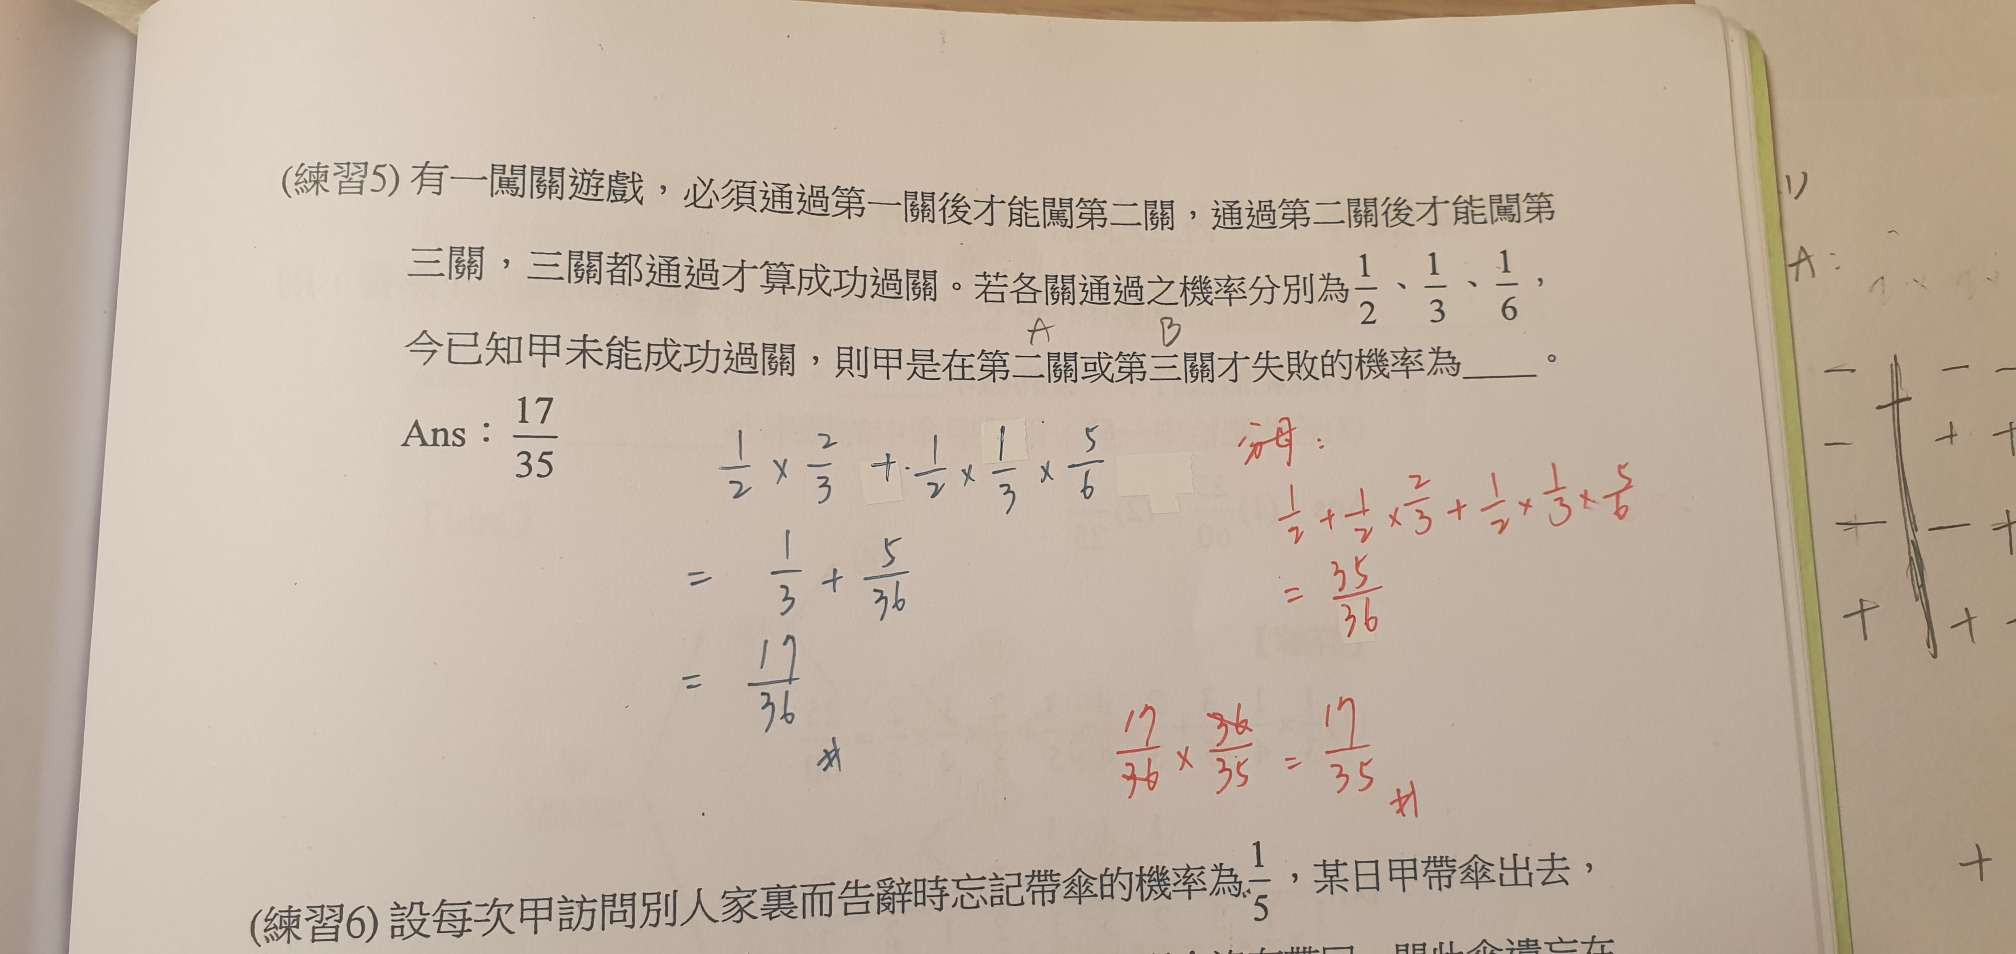 (練習5) 有一闖關遊戲，必須通過第一關後才能闖第二關，通過第二關後才能闖第
三關，三關都通過才算成功過關。若各關通過之機率分別為 1/2、1/3、1/6，
A B
今已知甲未能成功過關，則甲是在第二關或第三關才失敗的機率為____。
Ans：17/35
1/2 × 2/3 + 1/2 × 1/3 × 5/6
= 1/3 + 5/36
= 17/36 #
分母：
1/2 + 1/2 × 2/3 + 1/2 × 1/3 × 5/6
= 35/36
17/36 × 36/35 = 17/35 #
(練習6) 設每次甲訪問別人家裏而告辭時忘記帶傘的機率為 1/5，某日甲帶傘出去，
1)
A:
− + − −
− + +
+ − +
+ +
+